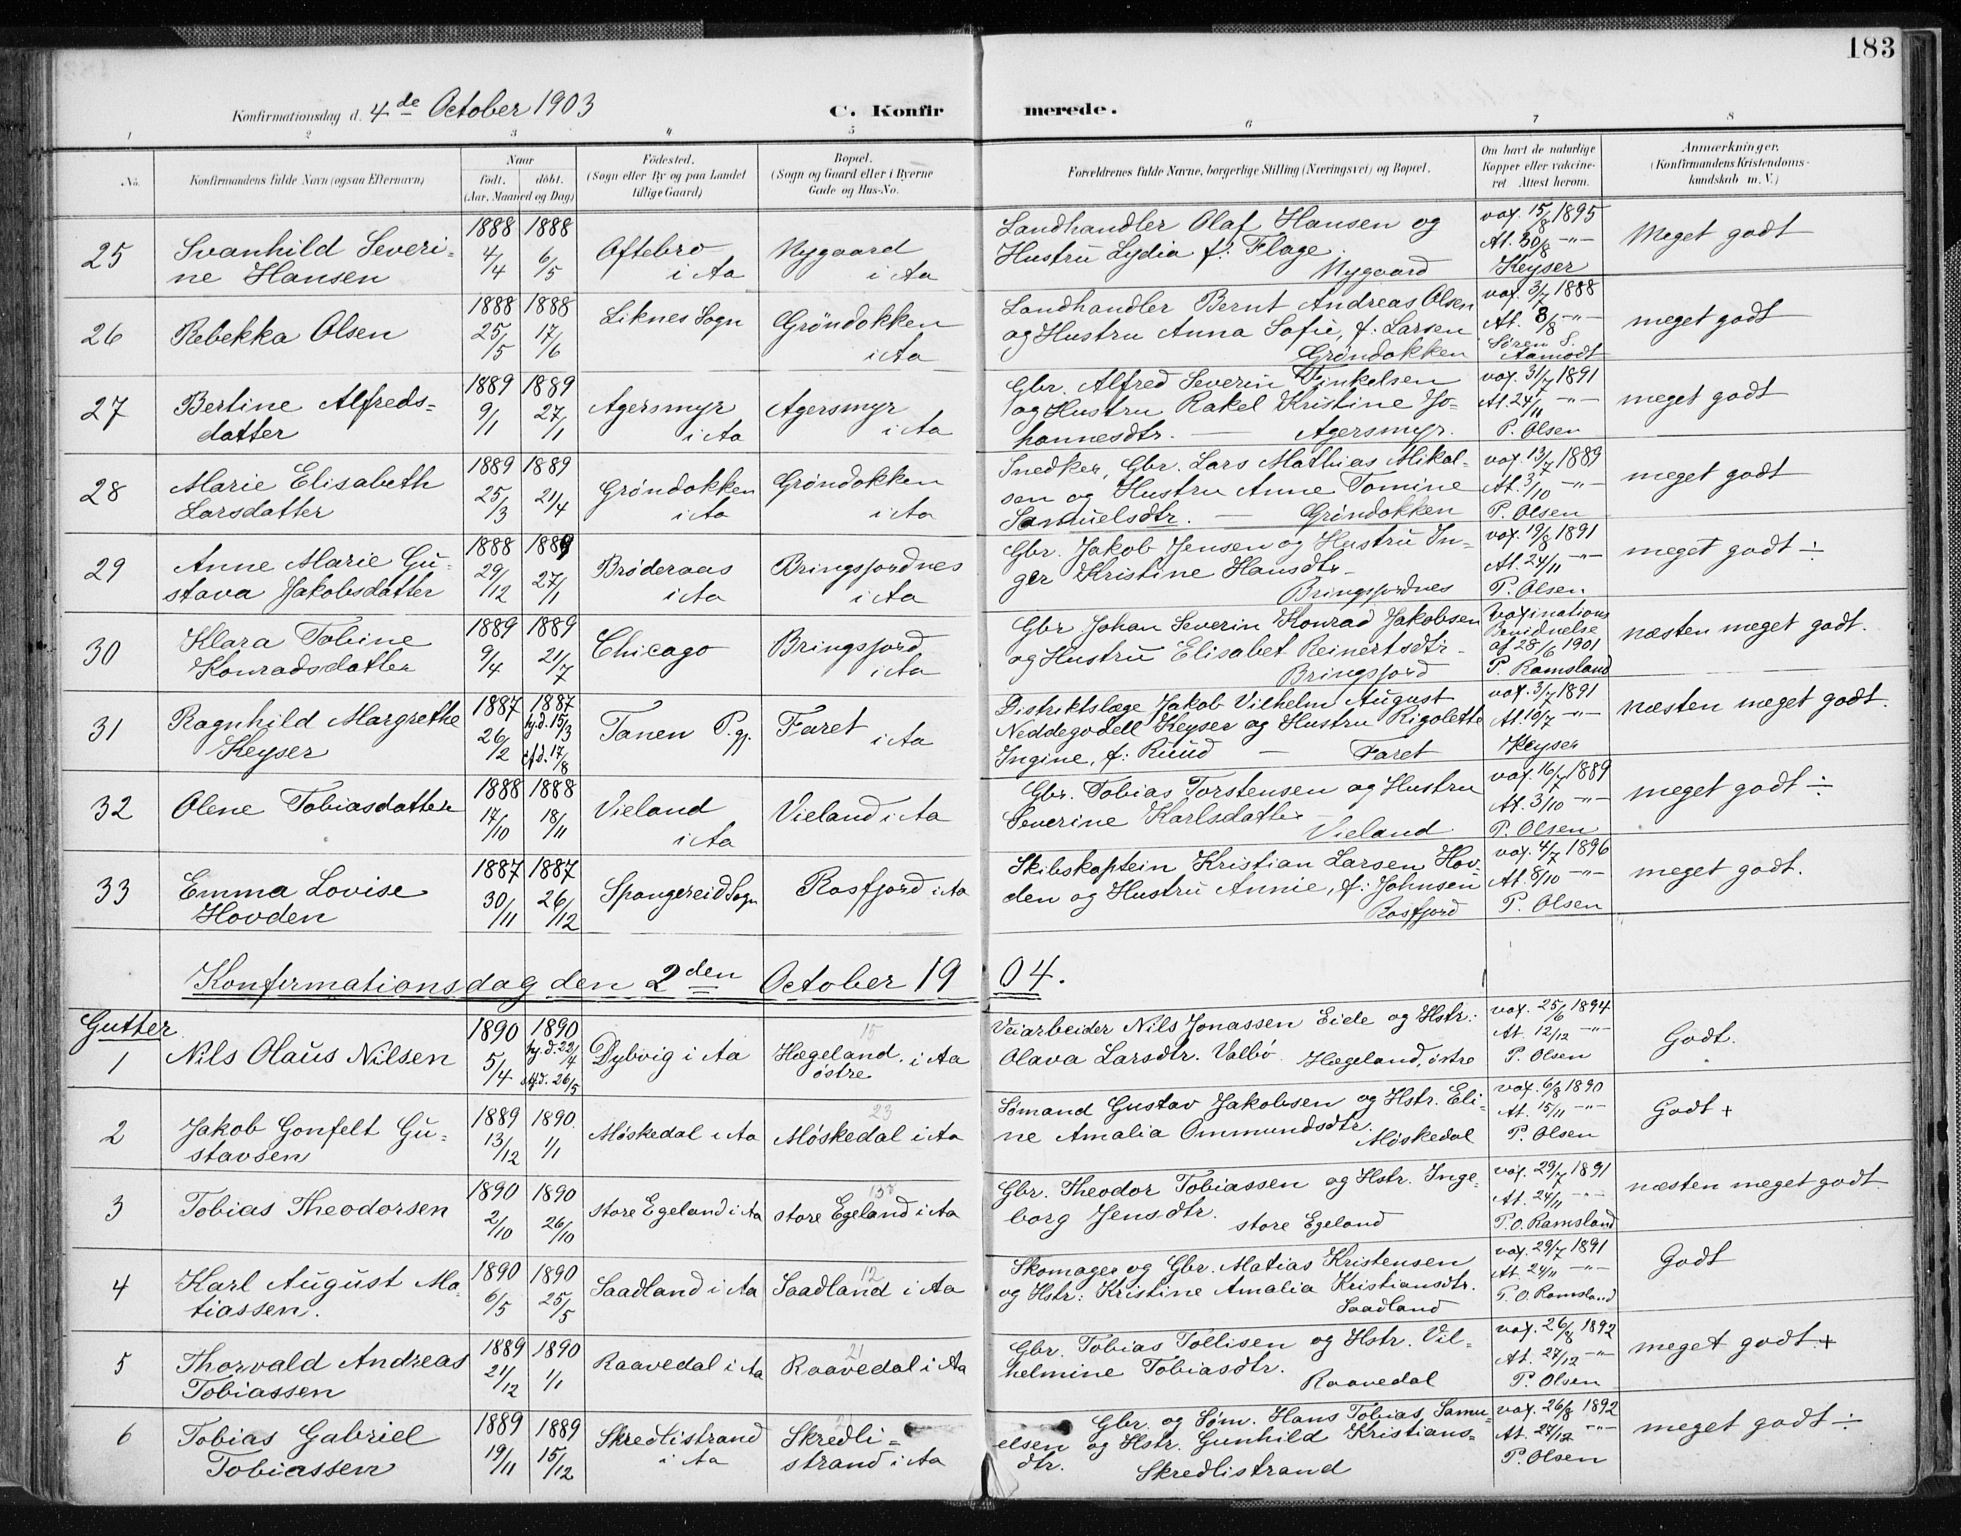 183
Konfirmationsdag d. 4de October 1903
C. Konfirmerede.
1 2 3 4 5 6 7 8
No. Konfirmandens fulde Navn (ogsaa Efternavn) Naar født. døbt. (Aar, Maaned og Dag) Fødested. (Sogn eller By og paa Landet tillige Gaard) Bopæl. (Sogn og Gaard eller i Byerne Gade og Hus-No. Forældrenes fulde Navne, borgerlige Stilling (Næringsvei) og Bopæl. Om havt de naturlige Kopper eller vakcineret. Attest herom. Anmærkninger. (Konfirmandens Kristendomskundskab m. V.)
25 Svanhild Severine Hansen 1888 4/4 1888 6/5 Oftebro i Aa Nygaard i Aa Landhandler Olaf Hansen og Hustru Lydia f: Flage. Nygaard vax. 15/8 1895 At. 30/8 -"- Keyser Meget godt
26 Rebekka Olsen 1888 25/5 1888 17/6 Liknes Sogn Gröndokken i Aa Landhandler Bernt Andreas Olsen og Hustru Anna Sofie, f. Larsen Gröndokken vax. 3/7 1888 At. 8/8 -"- Søren S. Aamodt meget godt
27 Bertine Alfredsdatter 1889 9/1 1889 27/1 Agersmyr i Aa Agersmyr i Aa Gbr. Alfred Severin Finkelsen og Hustru Rakel Kristine Johannesdtr. — Agersmyr. vax. 31/7 1891 At. 24/11 -"- P. Olsen meget godt
28 Marie Elisabeth Larsdatter 1889 25/3 1889 21/4 Gröndokken i Aa Gröndokken i Aa Snedker, Gbr. Lars Mathias Mikalsen og Hustru Anne Tomine Samuelsdtr. — Gröndokken vax. 13/7 1889 At. 3/10 -"- P. Olsen meget godt
29 Anne Marie Gustava Jakobsdatter 1888 29/12 1889 27/1 Brøderaas i Aa Bringsfjordnes i Aa Gbr. Jakob Jensen og Hustru Inger Kristine Hansdtr. Bringsfjordnes vax. 19/8 1891 At. 24/11 -"- P. Olsen meget godt ÷
30 Klara Tobine Konradsdatter 1889 9/4 1889 21/7 Chicago Bringsfjord i Aa Gbr Johan Severin Konrad Jakobsen og Hustru Elisabet Reinertsdtr. Bringsfjord Vaxinations Bevidnelse af 28/6 1901 P. Ramsland næsten meget godt.
31 Ragnhild Margrethe Keyser 1887 26/2 1887 hj.d. 15/3 stf.d. 17/8 Tanen P.gj. Faret i Aa Distriktslæge Jakob Vilhelm August Neddegodell Keyser og Hustru Rigolette Ingine, f: Ruud — Faret vax. 3/7 1891 At. 10/7 -"- Keyser næsten meget godt.
32 Olene Tobiasdatter 1888 17/10 1888 18/11 Vieland i Aa Vieland i Aa Gbr. Tobias Torstensen og Hustru Severine Karlsdatter Vieland vax. 16/7 1889 At. 3/10 -"- P. Olsen meget godt ÷
33 Emma Lovise Hovden 1887 30/11 1887 26/12 Spangereid Sogn Rosfjord i Aa Skibskaptein Kristian Larsen Hovden og Hustru Annie, f: Johnsen Rosfjord vax. 4/7 1896 At. 8/10 -"- P. Olsen meget godt.
Konfirmationsdag den 2den October 1904.
Gutter.
1 Nils Olaus Nilsen 1890 5/4 1890 hj.d. 22/4 stf.d. 26/5 Dybvig i Aa 15 Hægeland, østre i Aa Veiarbeider Nils Jonassen Eide og Hstr: Olava Larsdtr. Valbø. Hægeland, østre vax. 25/6 1894 At. 12/12 -"- P. Olsen Godt.
2 Jakob Gonfelt Gustavsen 1889 13/12 1890. 1/1 Møskedal i Aa 23 Møskedal i Aa Sømand Gustav Jakobsen og Hstr. Eline Amalia Ommundsdtr. Møskedal vax. 6/8 1890 At. 15/11 -"- P. Olsen Godt +
3 Tobias Theodorsen 1890 2/10 1890 26/10 store Egeland i Aa store Egeland i Aa Gbr. Theodor Tobiassen og Hstr. Ingeborg Jensdtr. store Egeland vax. 29/7 1891 At. 24/11 -"- P.O. Ramsland næsten meget godt
4 Karl August Matiassen. 1890 6/5 1890 25/5 Saadland i Aa 12 Saadland i Aa Skomager og Gbr. Matias Kristensen og Hstr: Kristine Amalia Kristiansdtr. Saadland vax. 29/7 1891 At. 24/11 -"- P.O. Ramsland Godt
5 Thorvald Andreas Tobiassen 1889 21/12 1890 1/1 Raavedal i Aa 21 Raavedal i Aa Gbr. Tobias Tollisen og Hstr. Vilhelmine Tobiasdtr. Raavedal vax. 26/8 1892 At. 27/12 -"- P. Olsen meget godt +
6 Tobias Gabriel Tobiassen 1889 19/11 1889 15/12 Skredlistrand i Aa Skredlistrand i Aa Gbr. og Søm. Hans Tobias Samuelsen og Hstr. Gunhild Kristiansdtr. Skredlistrand vax. 26/8 1892 At. 27/12 -"- P. Olsen meget godt ÷